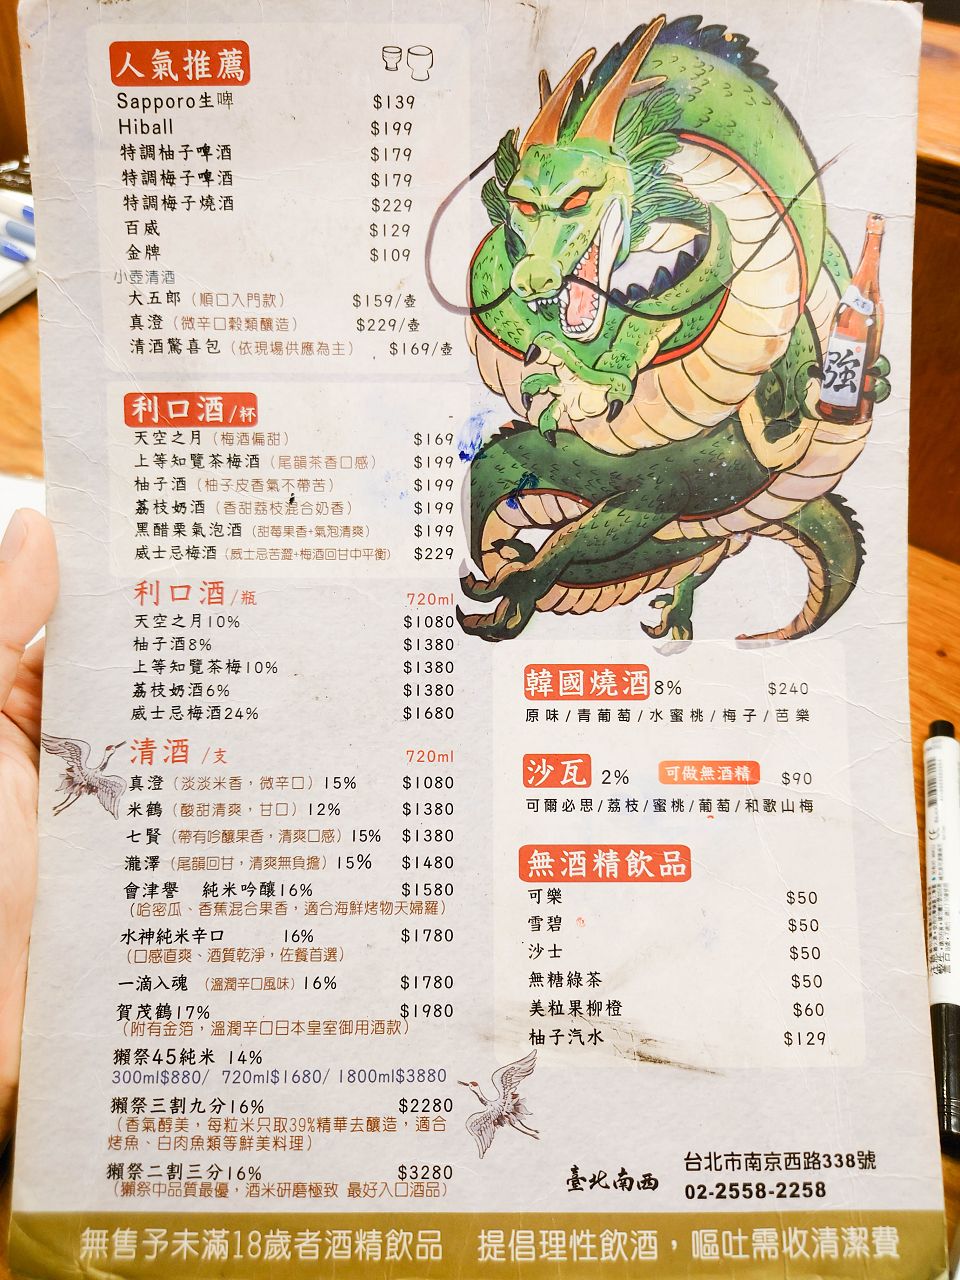 人氣推薦
Sapporo生啤 $139
Hiball $199
特調柚子啤酒 $179
特調梅子啤酒 $179
特調梅子燒酒 $229
百威 $129
金牌 $109
小壺清酒
大五郎（順口入門款） $159/壺
真澄（微辛口穀類釀造） $229/壺
清酒驚喜包（依現場供應為主） $169/壺
利口酒/杯
天空之月（梅酒偏甜） $169
上等知覽茶梅酒（尾韻茶香口感） $199
柚子酒（柚子皮香氣不帶苦） $199
荔枝奶酒（香甜荔枝混合奶香） $199
黑醋栗氣泡酒（甜莓果香+氣泡清爽） $199
威士忌梅酒（威士忌苦澀+梅酒回甘中平衡） $229
利口酒/瓶 720ml
天空之月10% $1080
柚子酒8% $1380
上等知覽茶梅10% $1380
荔枝奶酒6% $1380
威士忌梅酒24% $1680
清酒/支 720ml
真澄（淡淡米香，微辛口）15% $1080
米鶴（酸甜清爽，甘口）12% $1380
七賢（帶有吟釀果香，清爽口感）15% $1380
瀧澤（尾韻回甘，清爽無負擔）15% $1480
會津譽 純米吟釀16% $1580
（哈密瓜、香蕉混合果香，適合海鮮烤物天婦羅）
水神純米辛口 16% $1780
（口感直爽、酒質乾淨，佐餐首選）
一滴入魂（溫潤辛口風味）16% $1780
賀茂鶴17% $1980
（附有金箔，溫潤辛口日本皇室御用酒款）
獺祭45純米 14%
300ml$880/ 720ml$1680/ 1800ml$3880
獺祭三割九分16% $2280
（香氣醇美，每粒米只取39%精華去釀造，適合
烤魚、白肉魚類等鮮美料理）
獺祭二割三分16% $3280
（獺祭中品質最優，酒米研磨極致 最好入口酒品）
強
韓國燒酒8% $240
原味/青葡萄/水蜜桃/梅子/芭樂
沙瓦 2% 可做無酒精 $90
可爾必思/荔枝/蜜桃/葡萄/和歌山梅
無酒精飲品
可樂 $50
雪碧 $50
沙士 $50
無糖綠茶 $50
美粒果柳橙 $60
柚子汽水 $129
臺北南西
台北市南京西路338號
02-2558-2258
無售予未滿18歲者酒精飲品 提倡理性飲酒，嘔吐需收清潔費